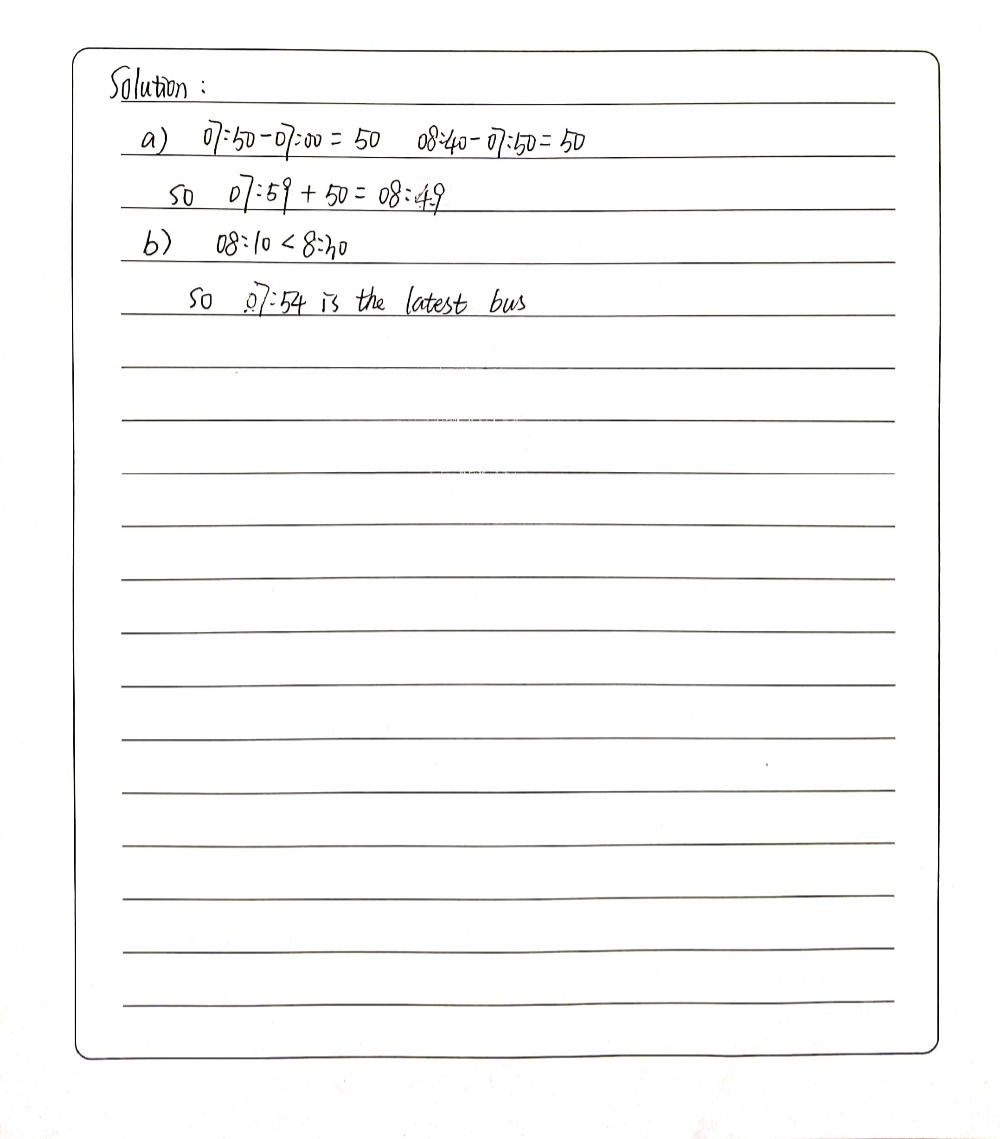 Solution :
a) 07:50-07:00 = 50 08:40-07:50 = 50
so 07:59 + 50 = 08:49
b) 08:10 < 8:30
so 07:54 is the latest bus